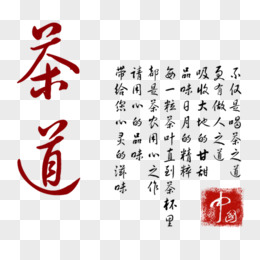 茶道
不仅是喝茶之道
更有做人之道
吸收大地的甘甜
品味日月的精粹
每一粒茶叶直到茶杯里
都是茶农用心之作
请用心的品味
带给您心灵的滋味
中国